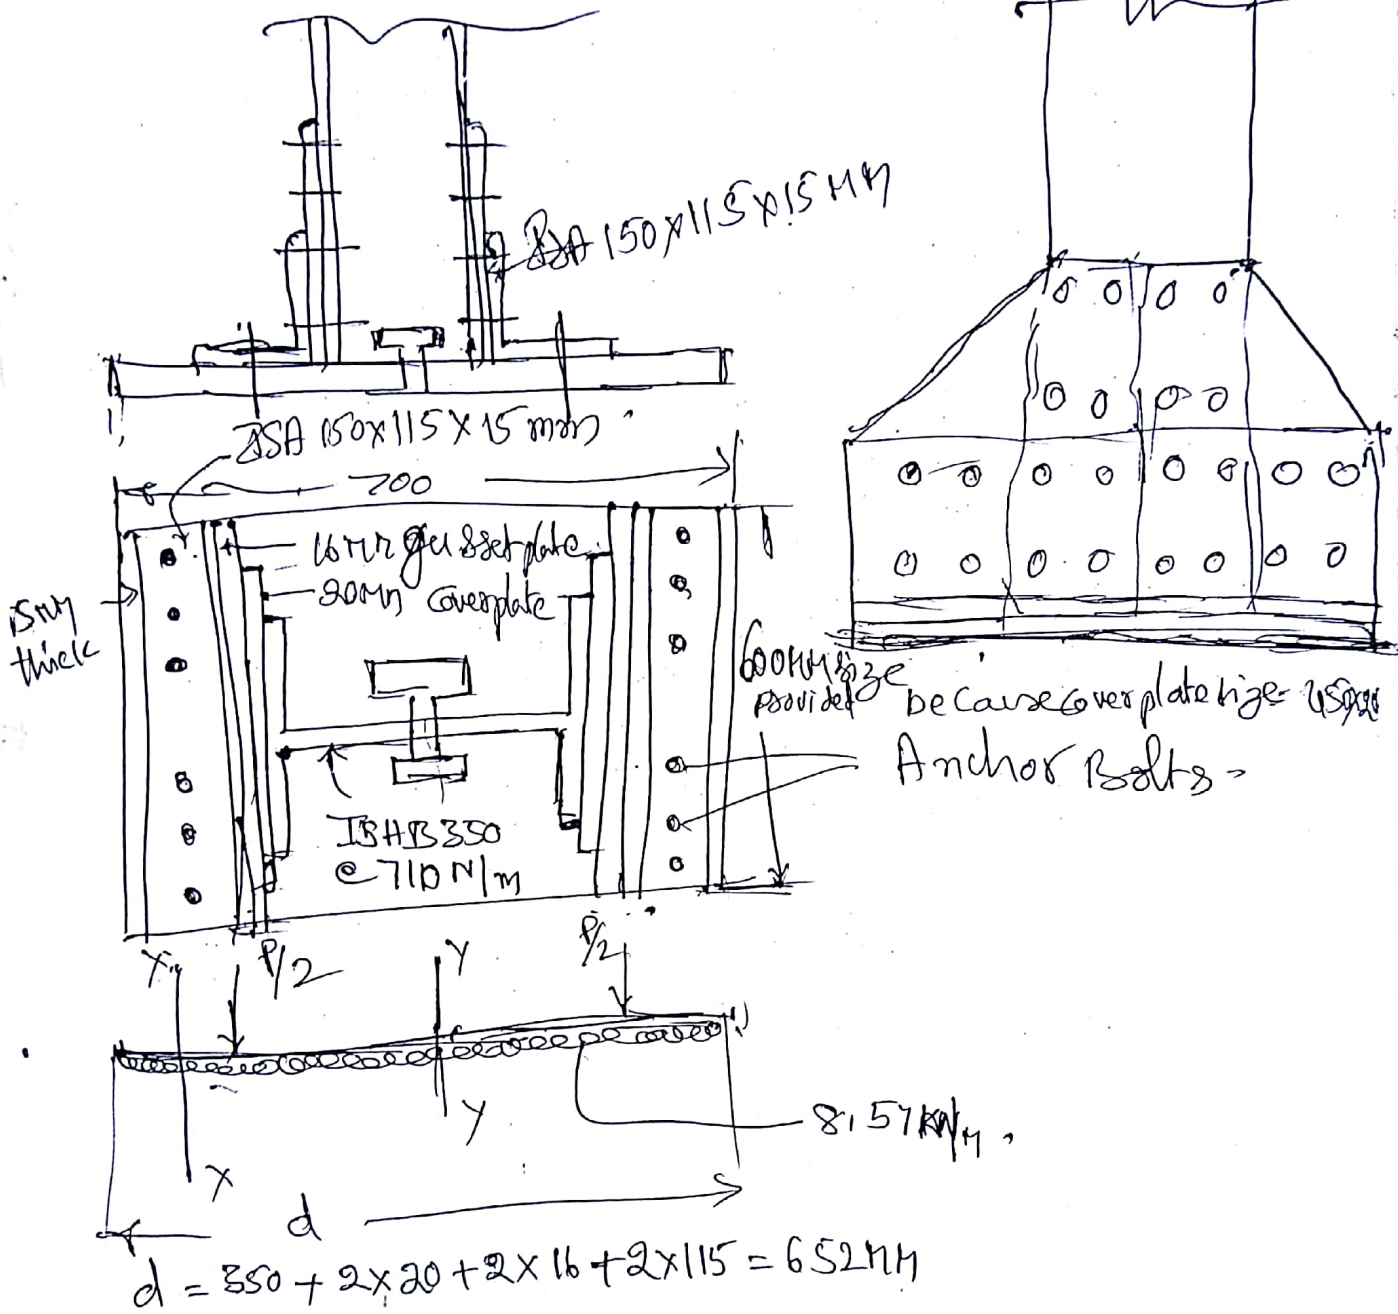 ISA 150X115X15 MM
ISA 150X115X15 mm
700
16MM gusset plate
20MM coverplate
15MM
thick
600MM size
provided
because coverplate size - 450X20
Anchor Bolts -
ISHB350
@ 710 N/m
P/2
P/2
X
Y
8.57 KN/M.
Y
X
d
d = 350 + 2X20 + 2X16 + 2X115 = 652MM